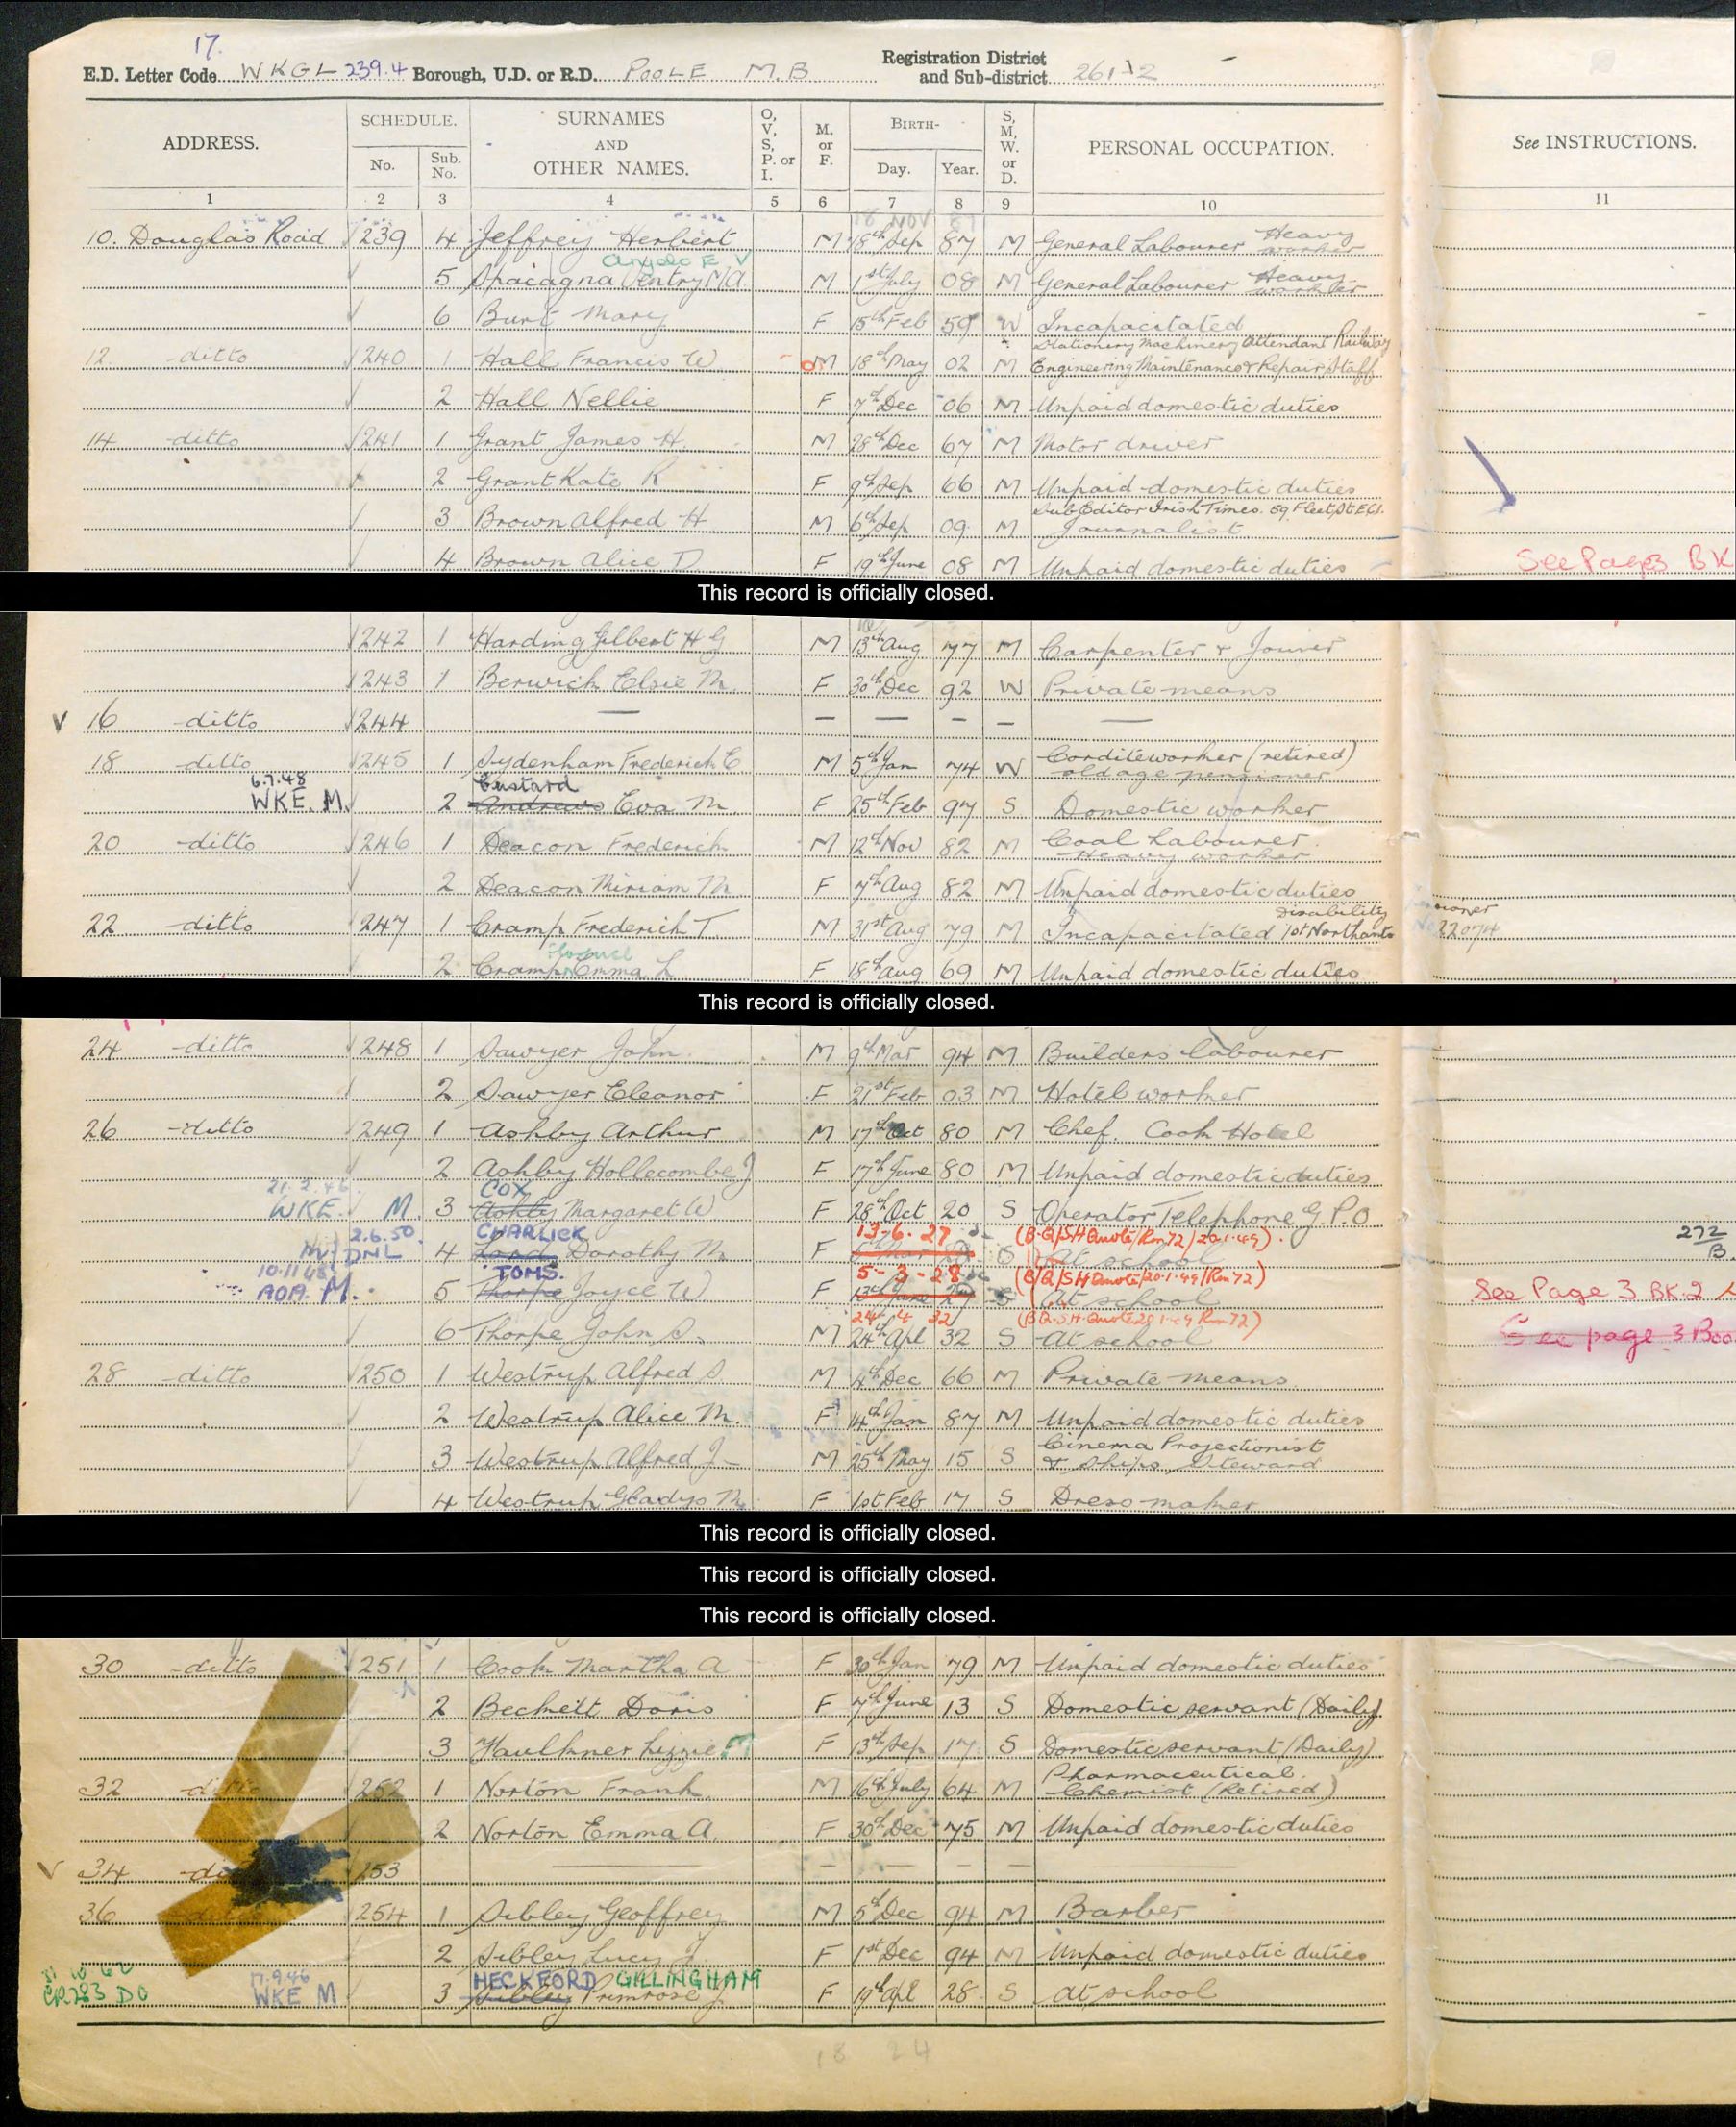 17.
E.D. Letter Code WKGL 239.4 Borough, U.D. or R.D. POOLE M.B Registration District and Sub-district 261-2
ADDRESS. SCHEDULE. No. Sub. No. SURNAMES AND OTHER NAMES. O, V, S, P. or I. M. or F. BIRTH- Day. Year. S, M, W. or D. PERSONAL OCCUPATION. See INSTRUCTIONS.
1 2 3 4 5 6 7 8 9 10 11
18 NOV 87
10. Douglas Road 239 4 Jeffrey Herbert M 18th Sep 87 M General Labourer Heavy worker
Angelo E V
5 Spacagna M 1st July 08 M General Labourer Heavy worker
6 Burt Mary F 15th Feb 59 W Incapacitated
Stationery Machinery Attendant Railway
12 -ditto 240 1 Hall Francis W M 18th May 02 M Engineering Maintenance & Repair Staff
2 Hall Nellie F 7th Dec 06 M Unpaid domestic duties
14 -ditto 241 1 Grant James H. M 28th Dec 67 M Motor driver
2 Grant Kate R F 9th Sep 66 M Unpaid domestic duties
Sub Editor Irish Times. 59, Fleet St E.C.1.
3 Brown Alfred H M 6th Sep 09 M Journalist
4 Brown Alice D F 19th June 08 M Unpaid domestic duties See Page 3 BK
This record is officially closed.
242 1 Harding Gilbert H G M 13th Aug 77 M Carpenter & Joiner
243 1 Berwick Elsie M. F 30th Dec 92 W Private means
V 16 -ditto 244 — — — — — —
18 -ditto 245 1 Sydenham Frederick E M 5th Jan 74 W Corditeworker (retired) old age pensioner
6.7.48 Custard
WKE. M. 2 Andrews Eva M. F 25th Feb 97 S Domestic worker
20 -ditto 246 1 Deacon Frederick M 12th Nov 82 M Coal Labourer. Heavy worker
2 Deacon Miriam M F 7th Aug 82 M Unpaid domestic duties
Disability
22 -ditto 247 1 Cramp Frederick T M 31st Aug 79 M Incapacitated 1st Northants 22074
2 Cramp Emma L F 18th Aug 69 M Unpaid domestic duties
This record is officially closed.
24 -ditto 248 1 Sawyer John M 9th Mar 94 M Builders labourer
2 Sawyer Eleanor F 21st Feb 03 M Hotel worker
26 -ditto 249 1 Ashby Arthur M 17th Oct 80 M Chef. Cook Hotel
2 Ashby Hollecombe J F 17th June 80 M Unpaid domestic duties
21.2.46 COX
WKE. M. 3 Ashby Margaret W F 28th Oct 20 S Operator Telephone G.P.O
2.6.50. CHARLICK 13-6.27 (B.Q/SH Quote/Rm 72/20.1.49). 272/B.
M DNL 4 Lord Dorothy M. F S At school
10.11.48 TOMS. 5-3-28 (B/Q/SH Quote/20.1.49/Rm 72)
AOA. M. 5 Thorpe Joyce W F 13th June 27 S At school See Page 3 BK.2
24 4 32 (BQ.S.H.Quote 20.1.49 Rm 72)
6 Thorpe John S. M 24th Apl 32 S At school See page 3 Boo
28 -ditto 250 1 Westrup Alfred S M 4th Dec 66 M Private means.
2 Westrup Alice M. F 14th Jan 87 M Unpaid domestic duties
3 Westrup Alfred J M 25th May 15 S Cinema Projectionist & Ships Steward
4 Westrup Gladys M. F 1st Feb 17 S Dress maker
This record is officially closed.
This record is officially closed.
This record is officially closed.
30 -ditto 251 1 Cook Martha A F 30th Jan 79 M Unpaid domestic duties
2 Beckett Doris F 7th June 13 S Domestic servant (Daily)
3 Faulkner Lizzie E F 13th Sep 17 S Domestic servant (Daily)
32 -ditto 252 1 Norton Frank M 16th July 64 M Pharmaceutical. Chemist (Retired)
2 Norton Emma A. F 30th Dec 75 M Unpaid domestic duties
V 34 253 — — — — —
36 -ditto 254 1 Sibley Geoffrey M 5th Dec 94 M Barber
2 Sibley Lucy J. F 1st Dec 94 M Unpaid domestic duties
17.9.46 HECKFORD GILLINGHAM
CR283 DO WKE M 3 Sibley Primrose J. F 19th Apl 28 S At school
18 24